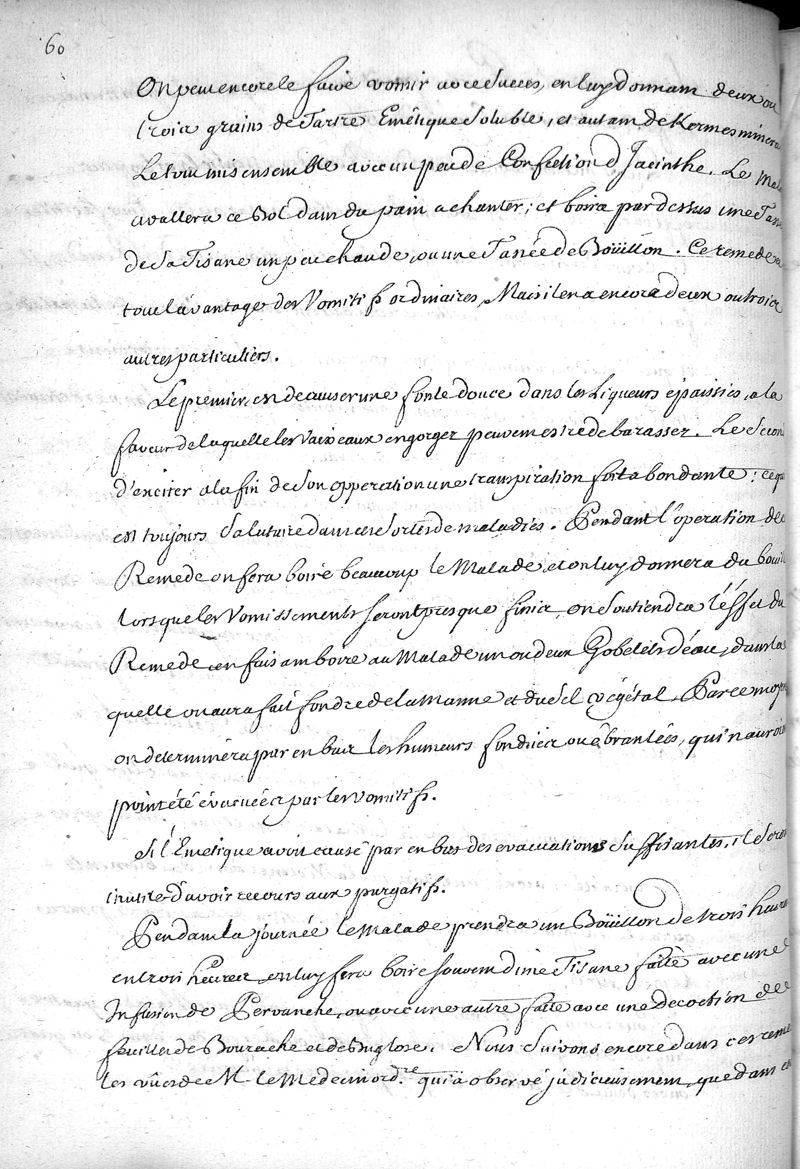 60
On peut encore le faire vomir avec Succes, en luy donnant deux ou
trois grains de Tartre Emétique Soluble, et autant de Kermes minera
Le tout mis ensemble avec un peu de Confection d'Jacinthe. Le Mala
avallera ce Bol dans du pain a chanter; et boira par dessus une Tass
de Sa Tisane un peu chaude, ou une Tasée de Boüillon. Ce remede a
tout l'avantage des Vomitifs ordinaires, Mais il en a encore deux ou trois
autres particuliers.
Le premier, est de causer une fonte douce dans les Liqueurs épaissies, a la
faveur de laquelle les Vaisseaux engorgez peuvent estre debarassez. Le Secon
d'exciter a la fin de Son opperation une transpiration fort abondante: ce qui
est toujours Salutaire dans ces Sortes de maladies. Pendant l'operation de ce
Remede on fera boire beaucoup le Malade et on luy donnera du bouil
lorsque les Vomissements seront presque finis, on Soutiendra l'éffet du
Remede, en faisant boire au Malade un ou deux Gobelets d'éau, dans la
quelle on aura fait fondre de la Manne et du Sel végétal. Par ce moye
on determinera par en bas les humeurs fondües ou ébranlées, qui n'auroi
point été évacuées par les Vomitifs.
Si l'Emetique avoit causé par en bas des evacuations Suffisantes, il Seroi
inutile d'avoir recours aux purgatifs.
Pendant la journée le Malade prendra un Boüillon de trois heures
en trois heures, on luy fera boire Souvent d'une Tisane faite avec une
Infusion de Pervanche, ou avec une autre faite avec une Decoction de
feuilles de Bourache et de Buglose. Nous Suivons encore dans ces reme
les vûes de M. le Medecin ord.re qui a observé judicieusement, que dans ce